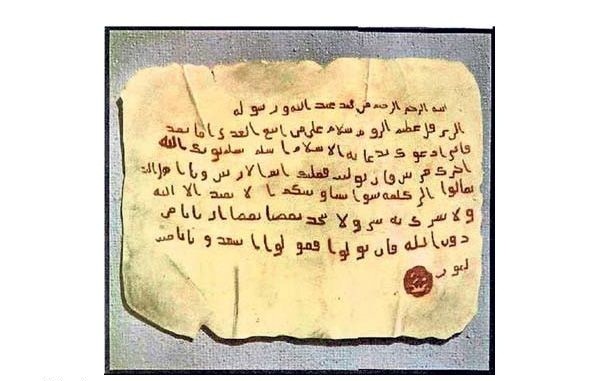 بسم الله الرحمن الرحيم من محمد عبد الله و رسوله
الى هرقل عظيم الروم سلام على من اتبع الهدى اما بعد
فانى ادعوك بدعاية الاسلام اسلم تسلم يوتك الله
اجرك مرتين فان توليت فعليك اثم الاريسين و يا اهل الكتب
تعالوا الى كلمة سوا بيننا و بينكم ا لا نعبد الا الله
و لا نشرك به شيا و لا يتخذ بعضنا بعضا اربابا من
دون الله فان تولوا فقولوا اشهدوا بانا مس
لمون